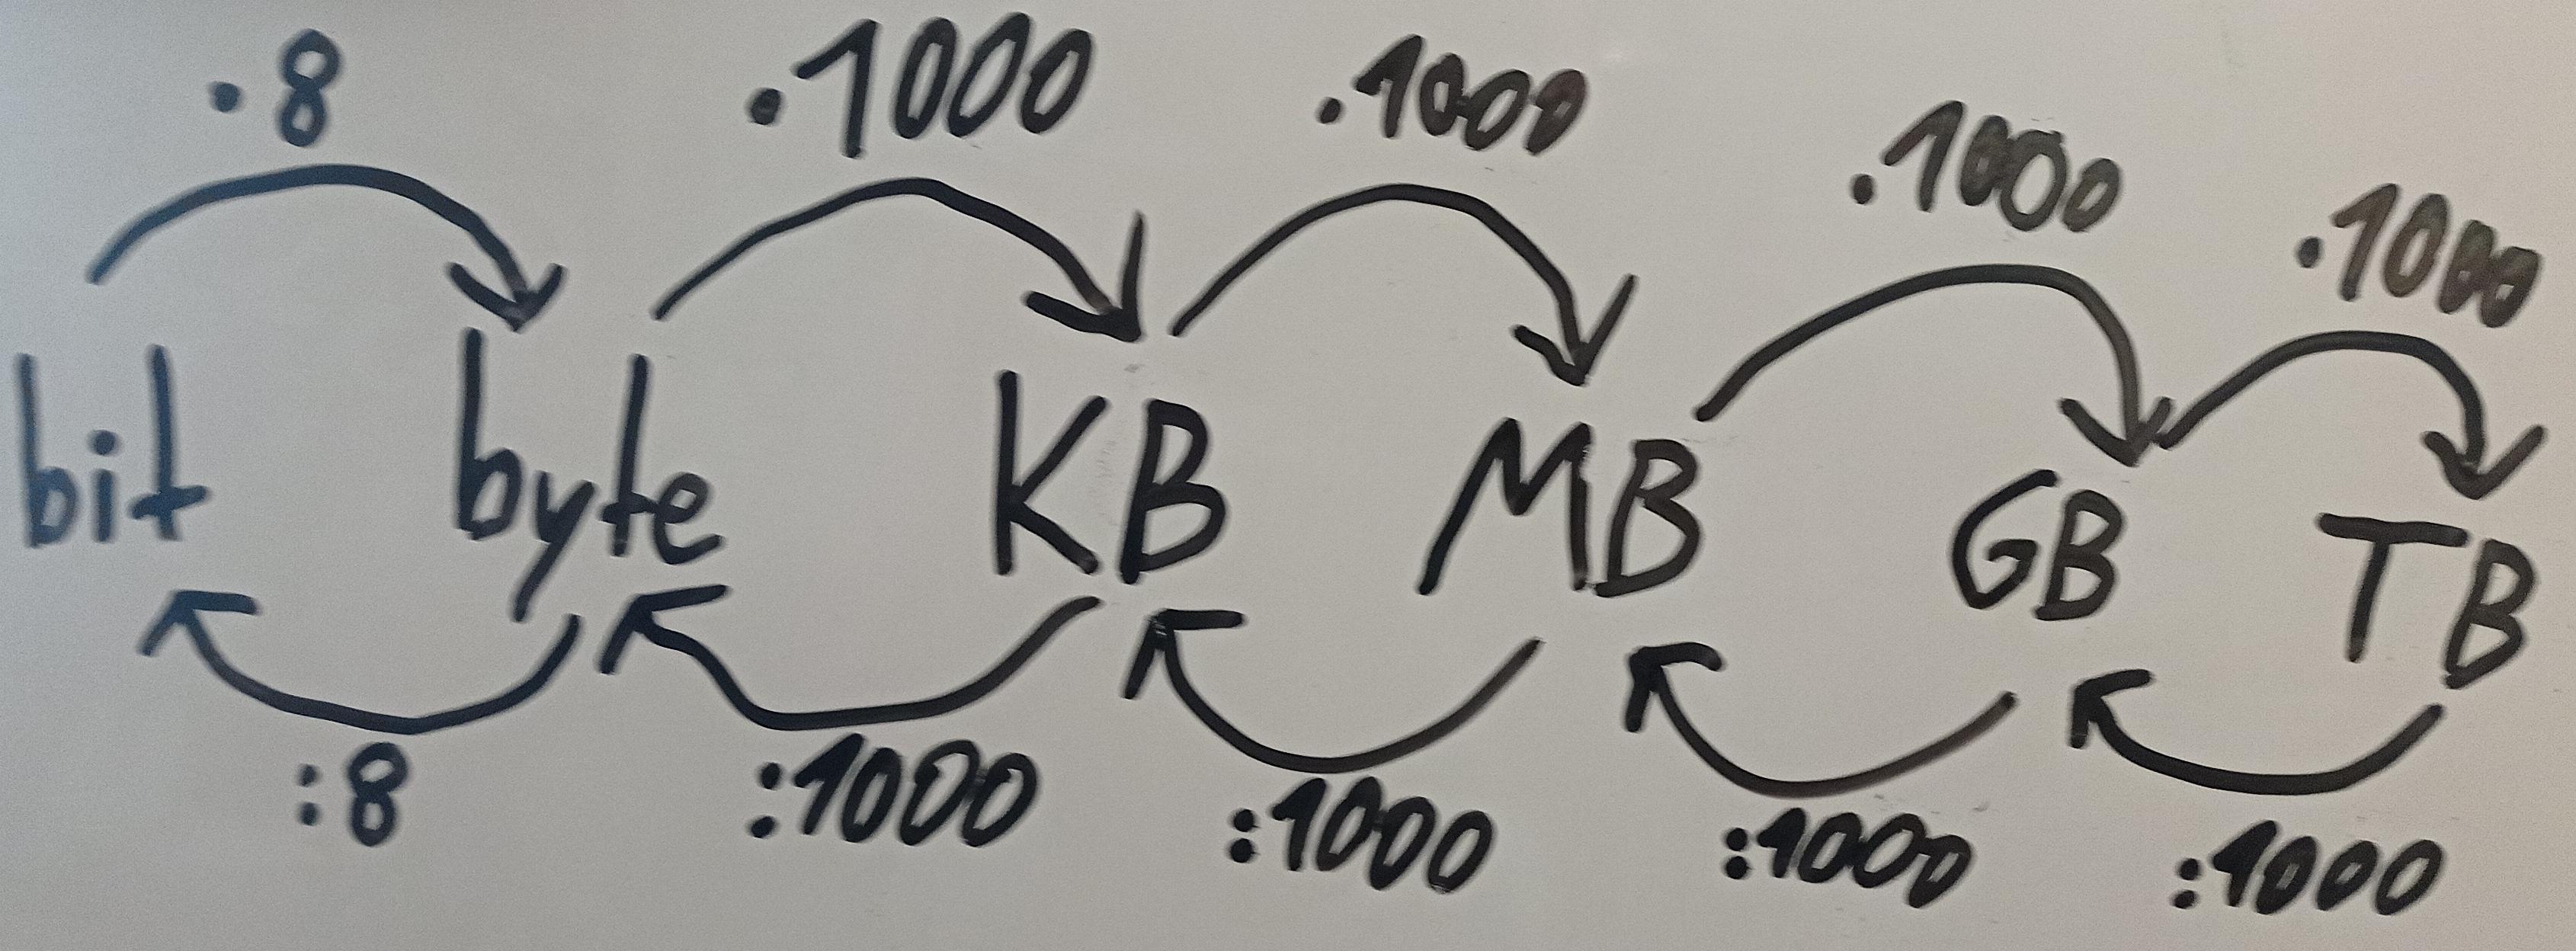 ·8 ·1000 ·1000 ·1000 ·1000
bit byte KB MB GB TB
:8 :1000 :1000 :1000 :1000